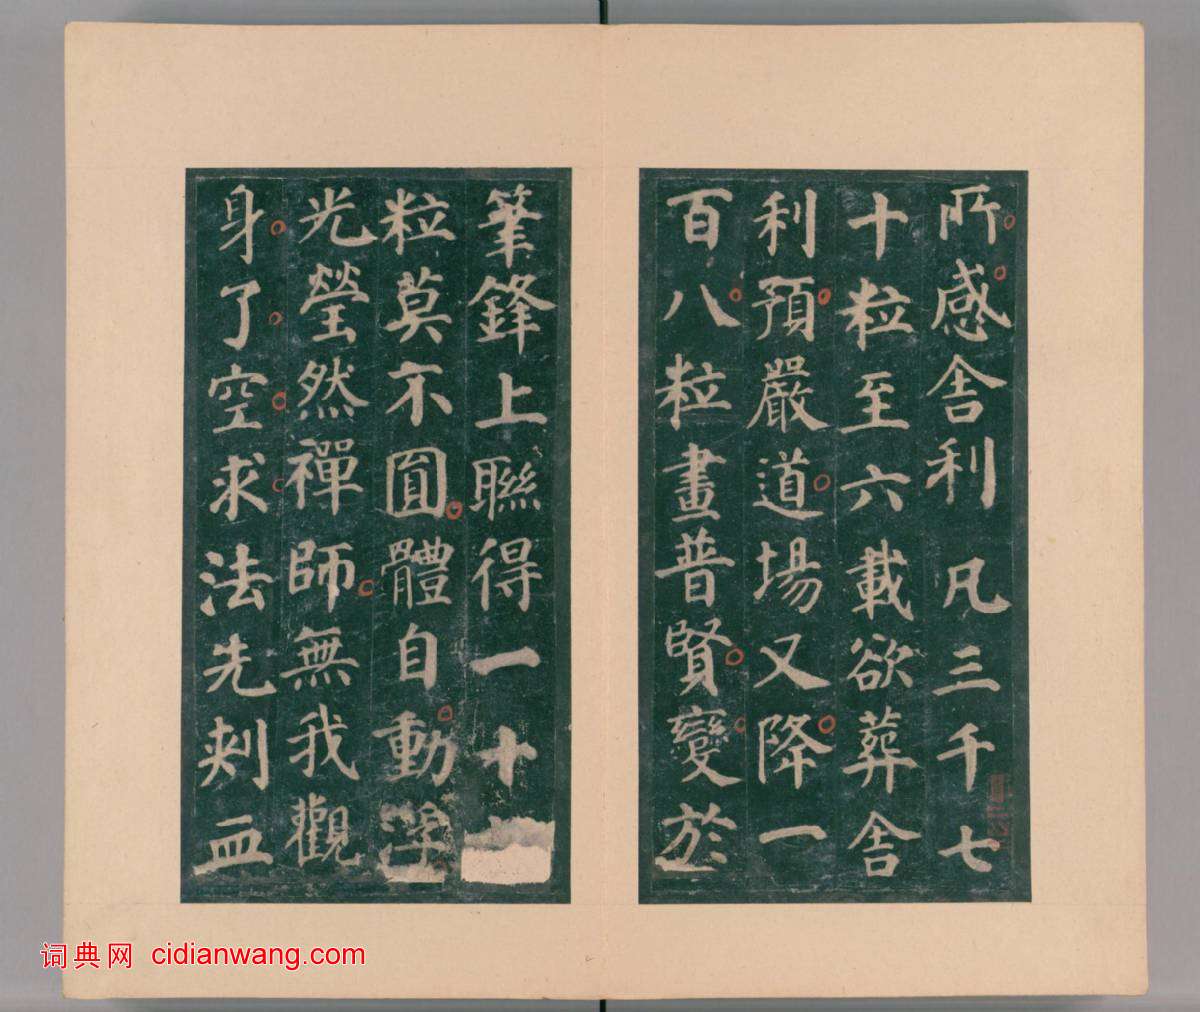 所感舍利凡三千七
十粒至六載欲葬舍
利預嚴道場又降一
百八粒畫普賢變於
筆鋒上聯得一十
粒莫不圓體自動浮
光瑩然禪師無我觀
身了空求法先刺血
词典网 cidianwang.com